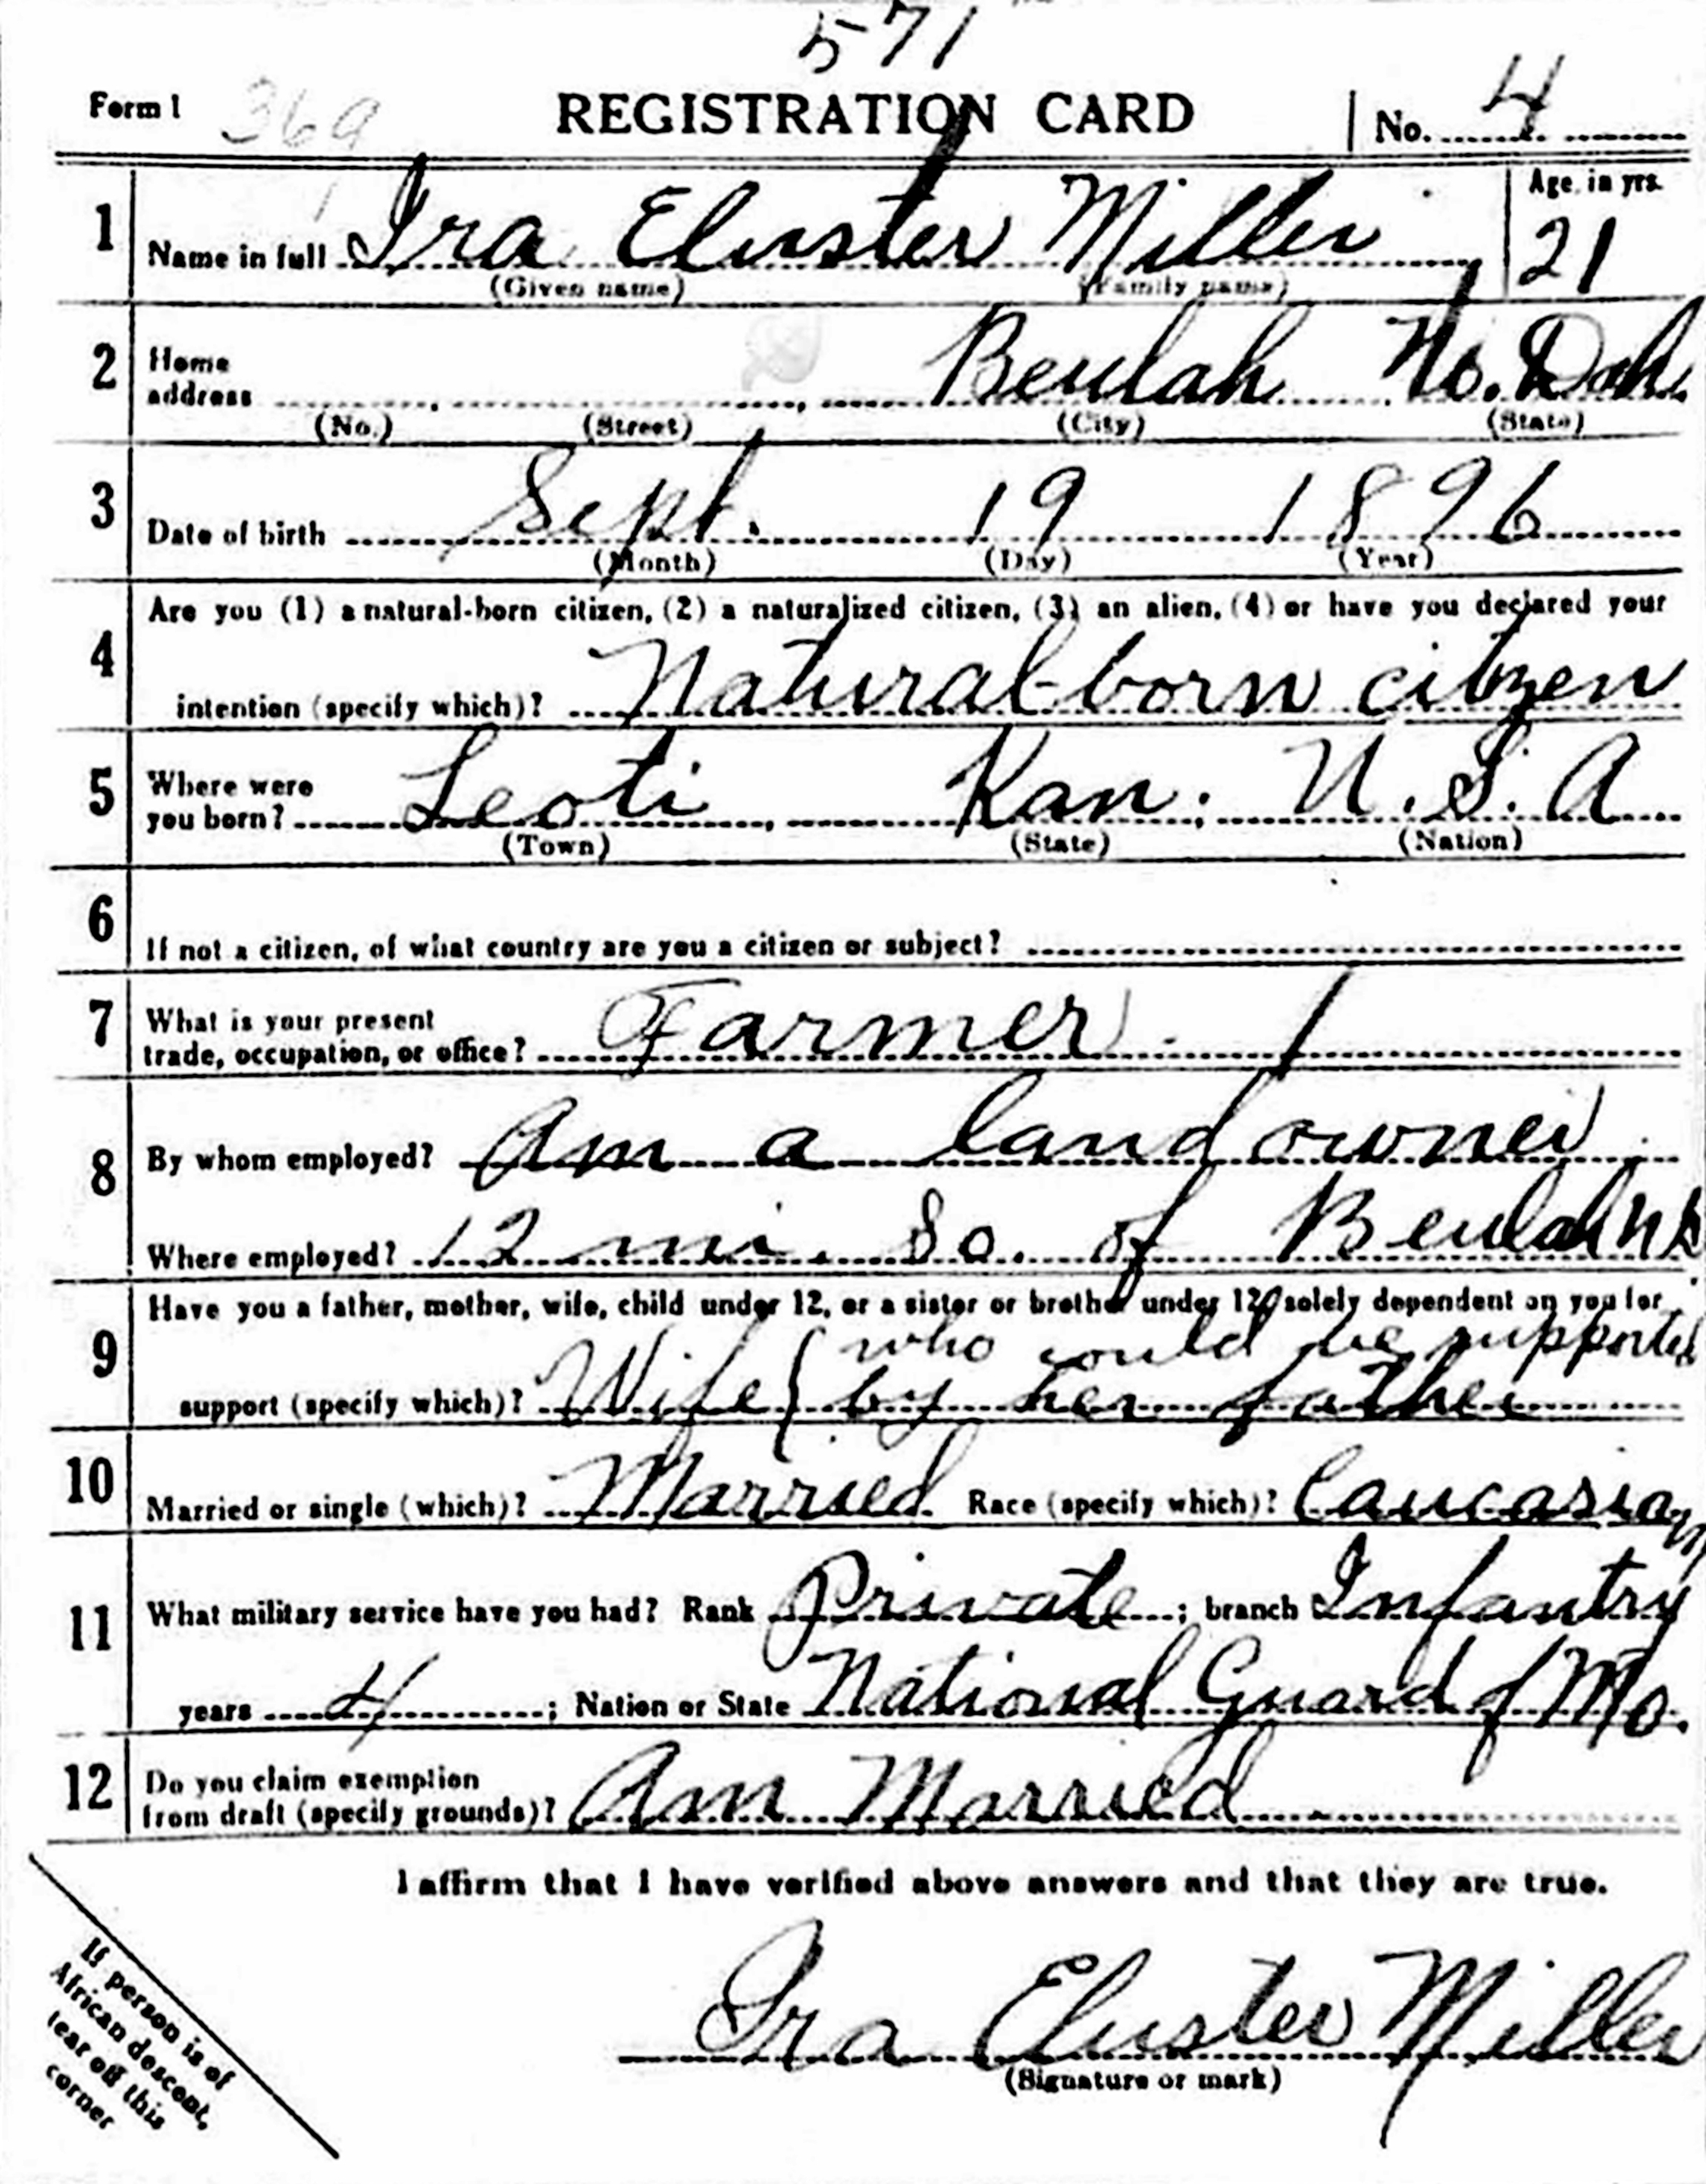 571
Form 1 369 REGISTRATION CARD No. 4
1 Name in full Ira Eluster Miller Age in yrs. 21
(Given name) (Family name)
2 Home address Beulah No. Dak.
(No.) (Street) (City) (State)
3 Date of birth Sept. 19 1896
(Month) (Day) (Year)
Are you (1) a natural-born citizen, (2) a naturalized citizen, (3) an alien, (4) or have you declared your
4 intention (specify which)? Natural-born citizen
5 Where were you born? Leoti, Kan. U.S.A
(Town) (State) (Nation)
6 If not a citizen, of what country are you a citizen or subject?
7 What is your present
trade, occupation, or office? Farmer
8 By whom employed? Am a land owner.
Where employed? 12 mi. So. of Beulah ND
Have you a father, mother, wife, child under 12, or a sister or brother under 12, solely dependent on you for
who could be supported
9 support (specify which)? Wife by her father
10 Married or single (which)? Married Race (specify which)? Caucasian
11 What military service have you had? Rank Private; branch Infantry
years 4; Nation or State National Guard of Mo.
12 Do you claim exemption
from draft (specify grounds)? Am Married
I affirm that I have verified above answers and that they are true.
Ira Eluster Miller
(Signature or mark)
If person is of
African descent,
tear off this
corner